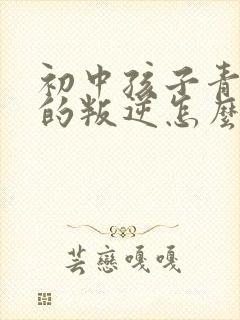 初中孩子青
的叛逆怎麼
芸戀嘎嘎